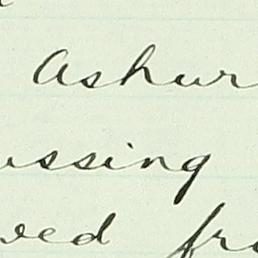 Ashur
ussing
ved fro